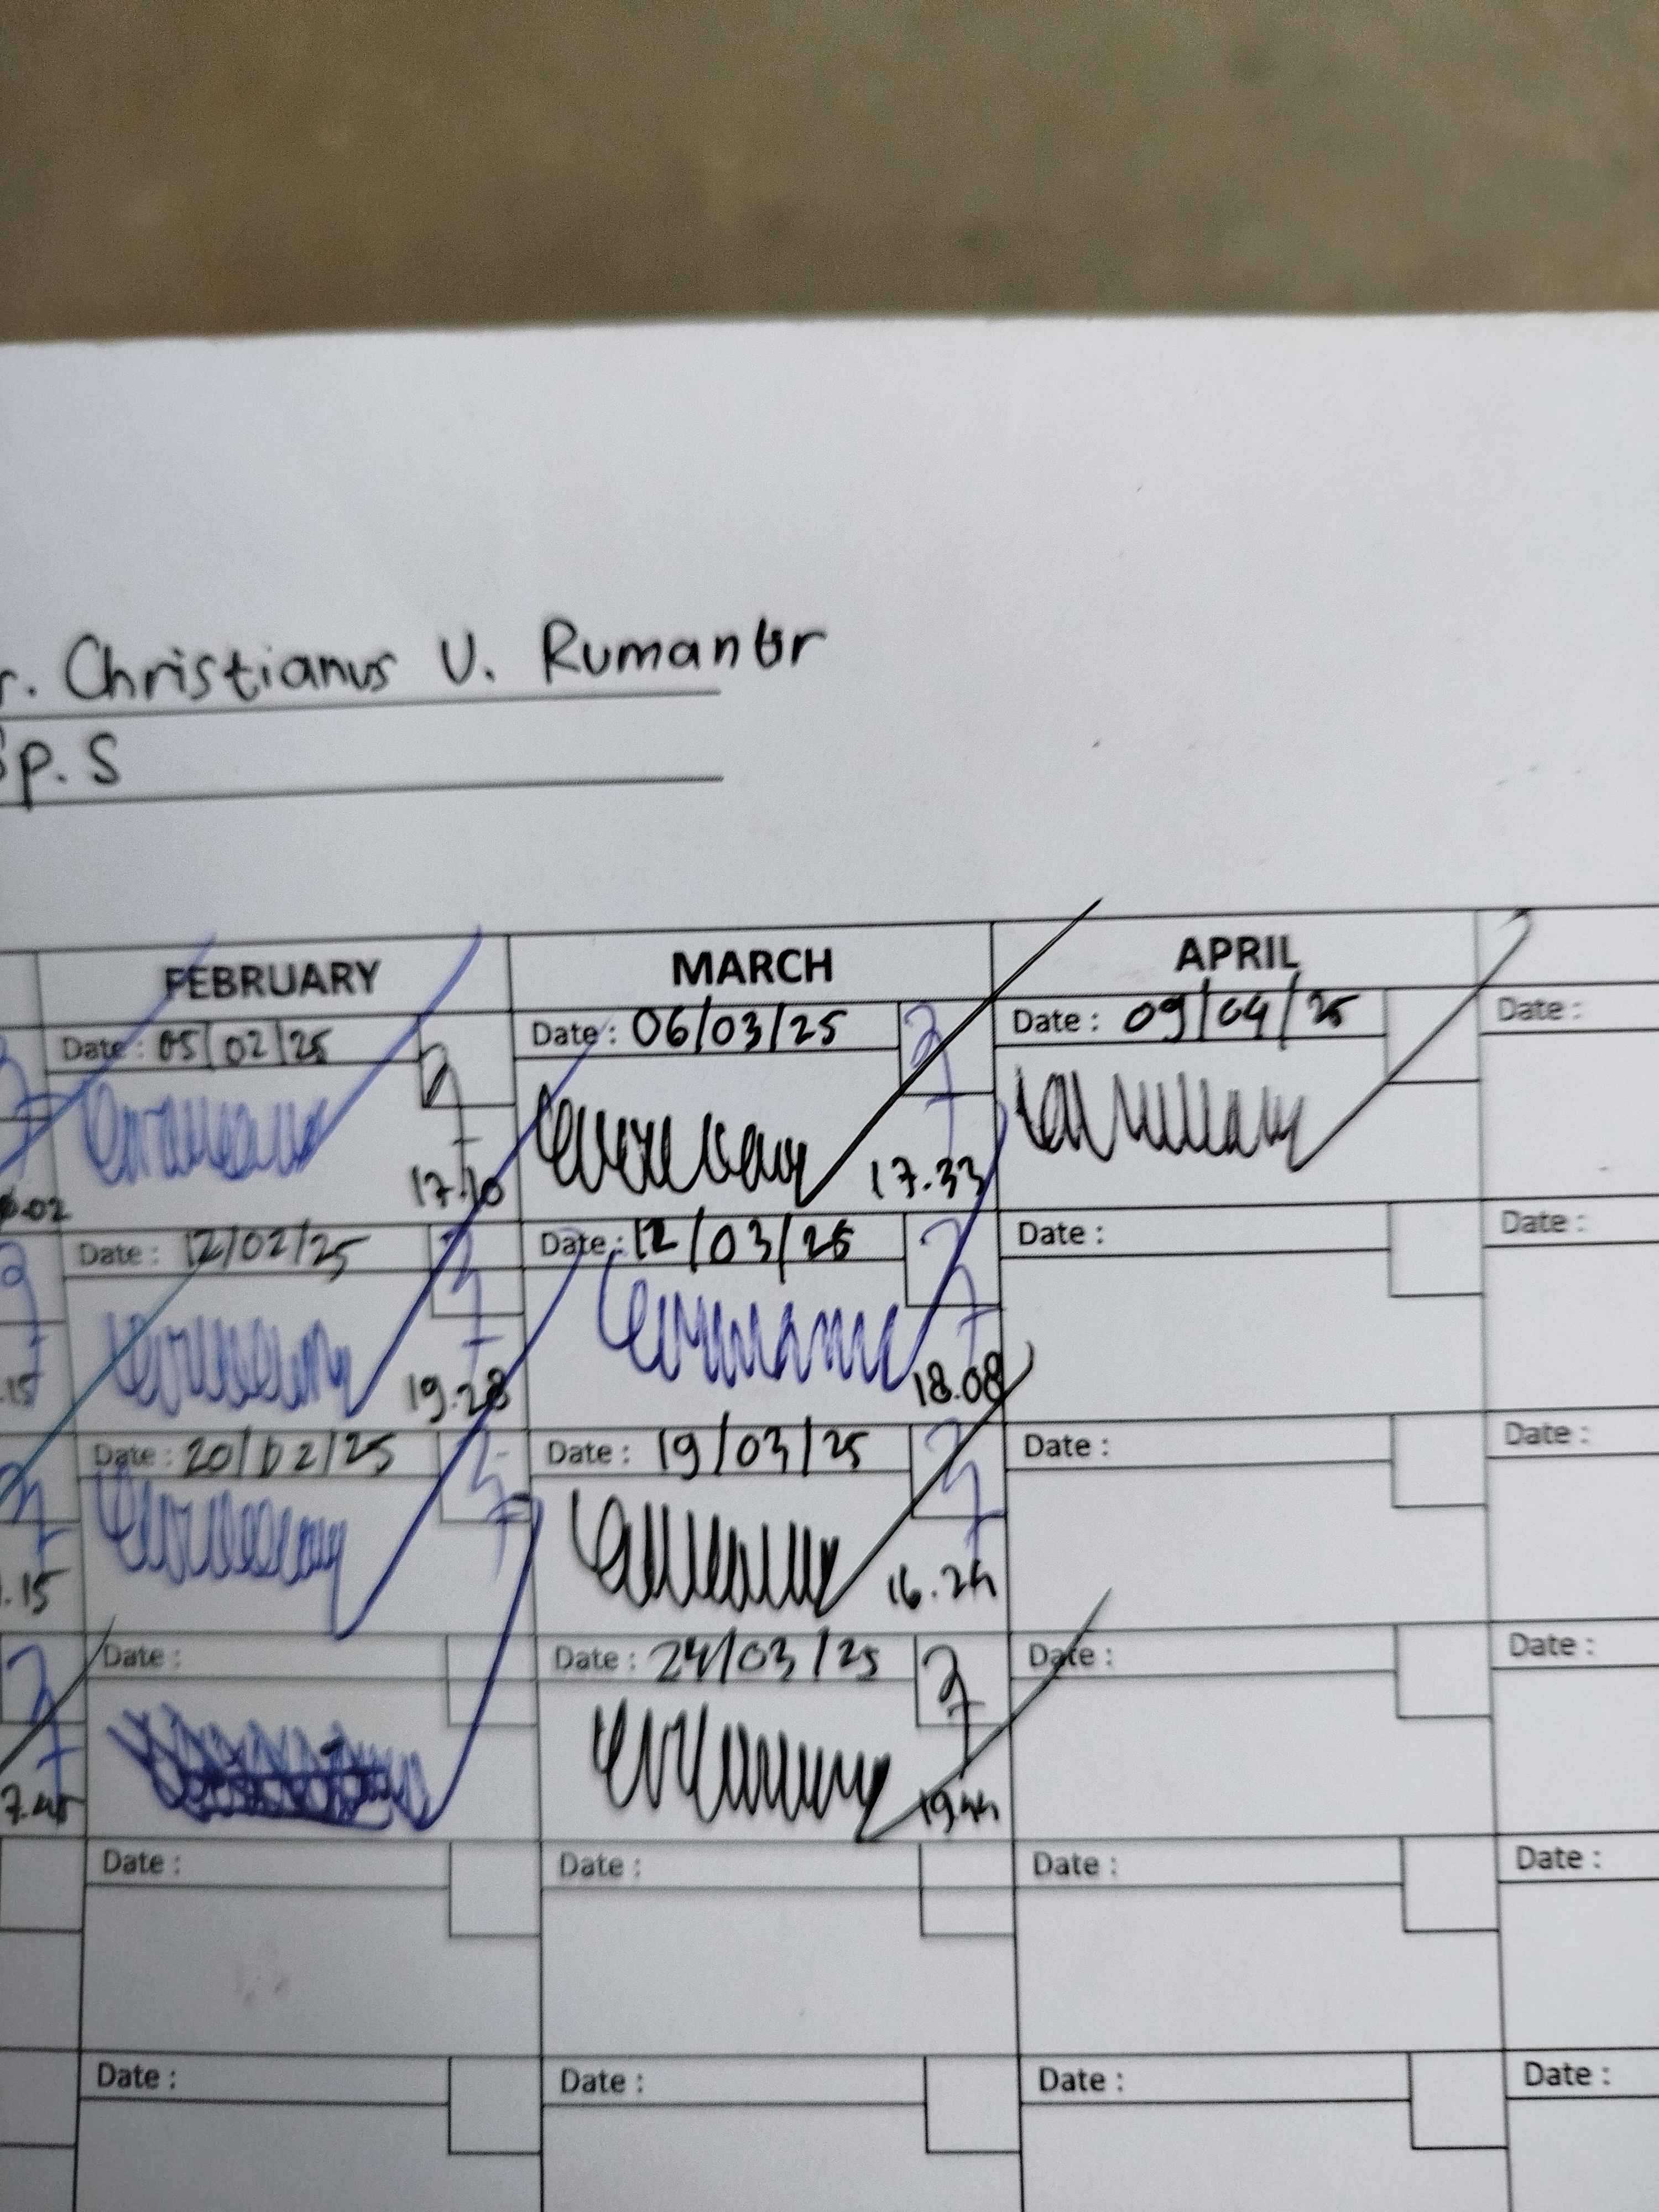 r. Christianus V. Rumantir
Sp. S
FEBRUARY MARCH APRIL
Date : 05/02/25 Date : 06/03/25 Date : 09/04/25 Date :
17.10 17.33
.02
Date : 12/02/25 Date : 12/03/25 Date : Date :
.15 19.28 18.08
Date : 20/02/25 Date : 19/03/25 Date : Date :
.15 16.24
Date : Date : 24/03/25 Date : Date :
7.45 19.44
Date : Date : Date : Date :
Date : Date : Date : Date :